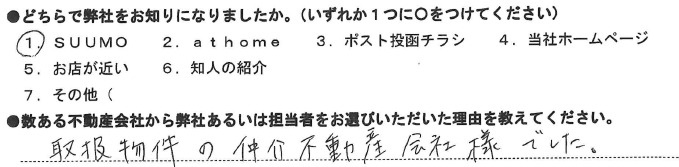 ●どちらで弊社をお知りになりましたか。(いずれか1つに○をつけてください)
1. SUUMO 2. athome 3. ポスト投函チラシ 4. 当社ホームページ
5. お店が近い 6. 知人の紹介
7. その他(
●数ある不動産会社から弊社あるいは担当者をお選びいただいた理由を教えてください。
取扱物件の仲介不動産会社様でした。